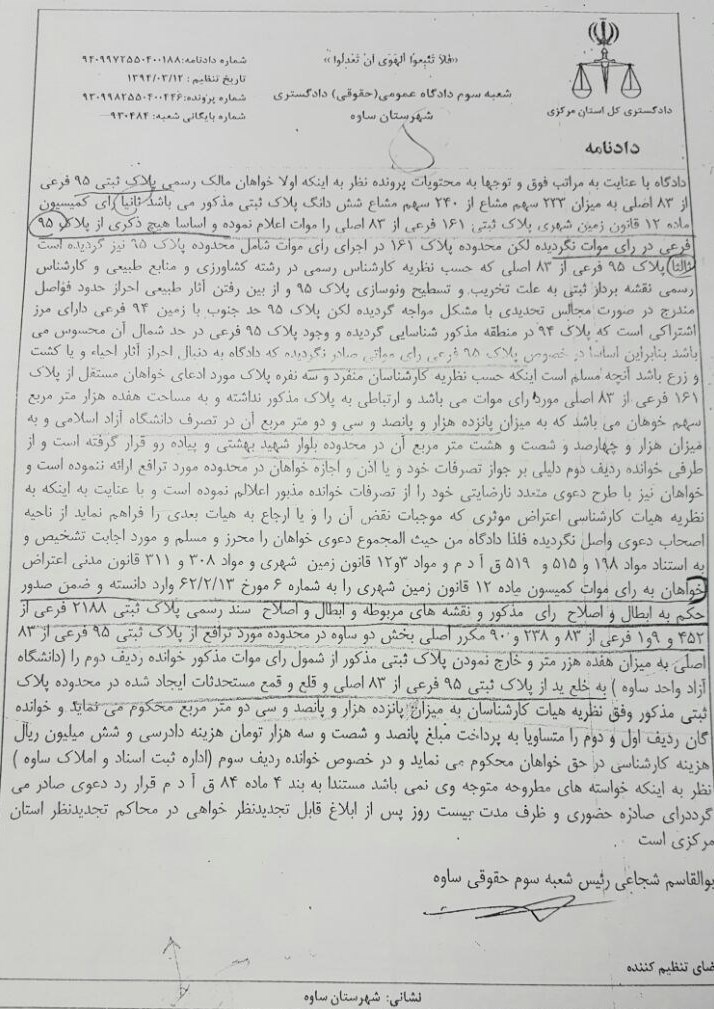 «فلا تتبعوا الهوی ان تعدلوا»
شعبه سوم دادگاه عمومی(حقوقی) دادگستری
شهرستان ساوه
دادگستری کل استان مرکزی
شماره دادنامه:۹۴۰۹۹۷۲۵۵۰۴۰۰۱۸۸
تاریخ تنظیم : ۱۳۹۴/۰۳/۱۲
شماره پرونده:۹۳۰۹۹۸۲۵۵۰۴۰۰۴۴۶
شماره بایگانی شعبه: ۹۳۰۴۸۴
دادنامه
دادگاه با عنایت به مراتب فوق و توجها به محتویات پرونده نظر به اینکه اولا خواهان مالک رسمی پلاک ثبتی ۹۵ فرعی
از ۸۳ اصلی به میزان ۲۳۳ سهم مشاع از ۲۴۰ سهم مشاع شش دانگ پلاک ثبتی مذکور می باشد ثانیا رای کمیسیون
ماده ۱۲ قانون زمین شهری پلاک ثبتی ۱۶۱ فرعی از ۸۳ اصلی را موات اعلام نموده و اساسا هیچ ذکری از پلاک ۹۵
فرعی در رای موات نگردیده لکن محدوده پلاک ۱۶۱ در اجرای رای موات شامل محدوده پلاک ۹۵ نیز گردیده است
ثالثا پلاک ۹۵ فرعی از ۸۳ اصلی که حسب نظریه کارشناس رسمی در رشته کشاورزی و منابع طبیعی و کارشناس
رسمی نقشه بردار ثبتی به علت تخریب و تسطیح ونوسازی پلاک ۹۵ و از بین رفتن آثار طبیعی احراز حدود فواصل
مندرج در صورت مجالس تحدیدی با مشکل مواجه گردیده لکن پلاک ۹۵ حد جنوب با زمین ۹۴ فرعی دارای مرز
اشتراکی است که پلاک ۹۴ در منطقه مذکور شناسایی گردیده و وجود پلاک ۹۵ فرعی در حد شمال آن محسوس می
باشد بنابراین اساسا در خصوص پلاک ۹۵ فرعی رای مواتی صادر نگردیده که دادگاه به دنبال احراز آثار احیاء و یا کشت
و زرع باشد آنچه مسلم است اینکه حسب نظریه کارشناسان منفرد و سه نفره پلاک مورد ادعای خواهان مستقل از پلاک
۱۶۱ فرعی از ۸۳ اصلی مورد رای موات می باشد و ارتباطی به پلاک مذکور نداشته و به مساحت هفده هزار متر مربع
سهم خوهان می باشد که به میزان پانزده هزار و پانصد و سی و دو متر مربع آن در تصرف دانشگاه آزاد اسلامی و به
میزان هزار و چهارصد و شصت و هشت متر مربع آن در محدوده بلوار شهید بهشتی و پیاده رو قرار گرفته است و از
طرفی خوانده ردیف دوم دلیلی بر جواز تصرفات خود و یا اذن و اجازه خواهان در محدوده مورد ترافع ارائه ننموده است و
خواهان نیز با طرح دعوی متعدد نارضایتی خود را از تصرفات خوانده مذبور اعلالم نموده است و با عنایت به اینکه به
نظریه هیات کارشناسی اعتراض موثری که موجبات نقض آن را و یا ارجاع به هیات بعدی را فراهم نماید از ناحیه
اصحاب دعوی واصل نگردیده فلذا دادگاه من حیث المجموع دعوی خواهان را محرز و مسلم و مورد اجابت تشخیص و
به استناد مواد ۱۹۸ و ۵۱۵ و ۵۱۹ ق آ د م و مواد ۳و۱۲ قانون زمین شهری و مواد ۳۰۸ و ۳۱۱ قانون مدنی اعتراض
خواهان به رای موات کمیسون ماده ۱۲ قانون زمین شهری را به شماره ۶ مورخ ۶۲/۲/۱۳ وارد دانسته و ضمن صدور
حکم به ابطال و اصلاح رای مذکور و نقشه های مربوطه و ابطال و اصلاح سند رسمی پلاک ثبتی ۲۱۸۸ فرعی از
۴۵۲ و ۹و۱ فرعی از ۸۳ و ۲۳۸ و ۹۰ مکرر اصلی بخش دو ساوه در محدوده مورد ترافع از پلاک ثبتی ۹۵ فرعی از ۸۳
اصلی به میزان هفده هزر متر و خارج نمودن پلاک ثبتی مذکور از شمول رای موات مذکور خوانده ردیف دوم را (دانشگاه
آزاد واحد ساوه ) به خلع ید از پلاک ثبتی ۹۵ فرعی از ۸۳ اصلی و قلع و قمع مستحدثات ایجاد شده در محدوده پلاک
ثبتی مذکور وفق نظریه هیات کارشناسان به میزان پانزده هزار و پانصد و سی دو متر مربع محکوم می نماید و خوانده
گان ردیف اول و دوم را متساویا به پرداخت مبلغ پانصد و شصت و سه هزار تومان هزینه دادرسی و شش میلیون ریال
هزینه کارشناسی در حق خواهان محکوم می نماید و در خصوص خوانده ردیف سوم (اداره ثبت اسناد و املاک ساوه )
نظر به اینکه خواسته های مطروحه متوجه وی نمی باشد مستندا به بند ۴ ماده ۸۴ ق آ د م قرار رد دعوی صادر می
گرددرای صادزه حضوری و ظرف مدت بیست روز پس از ابلاغ قابل تجدیدنظر خواهی در محاکم تجدیدنظر استان
مرکزی است .
بوالقاسم شجاعی رئیس شعبه سوم حقوقی ساوه
ضای تنظیم کننده
نشانی: شهرستان ساوه